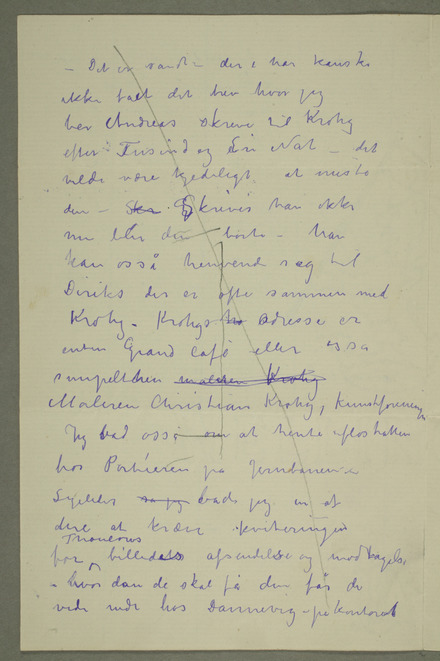 – Det er sandt – der e har kanske
ikke fått det brev hvor jeg
ber Andreas skrive til Krohg
efter Tusind og En Nat – det
vilde være kjedeligt at miste
den – Skr Skrives han ikke
nu blir den borte – han
kan osså henvende seg til
Diriks der er ofte sammen med
Krohg – Krohgs adresse er
enten Grand Café eller også
simpelthen maleren Krohg
Maleren Christian Krohg, Kunstforeningen
Jeg bad osså om at hente floshatten
hos Portieren på Jernbanen
så jeg bad jeg en af
dere at kræve kvitteringen
Thaulows
for billedets afsendelse og modtagelse
– hvordan de skal få den får de
vide nede hos Dannevig – på kontoret